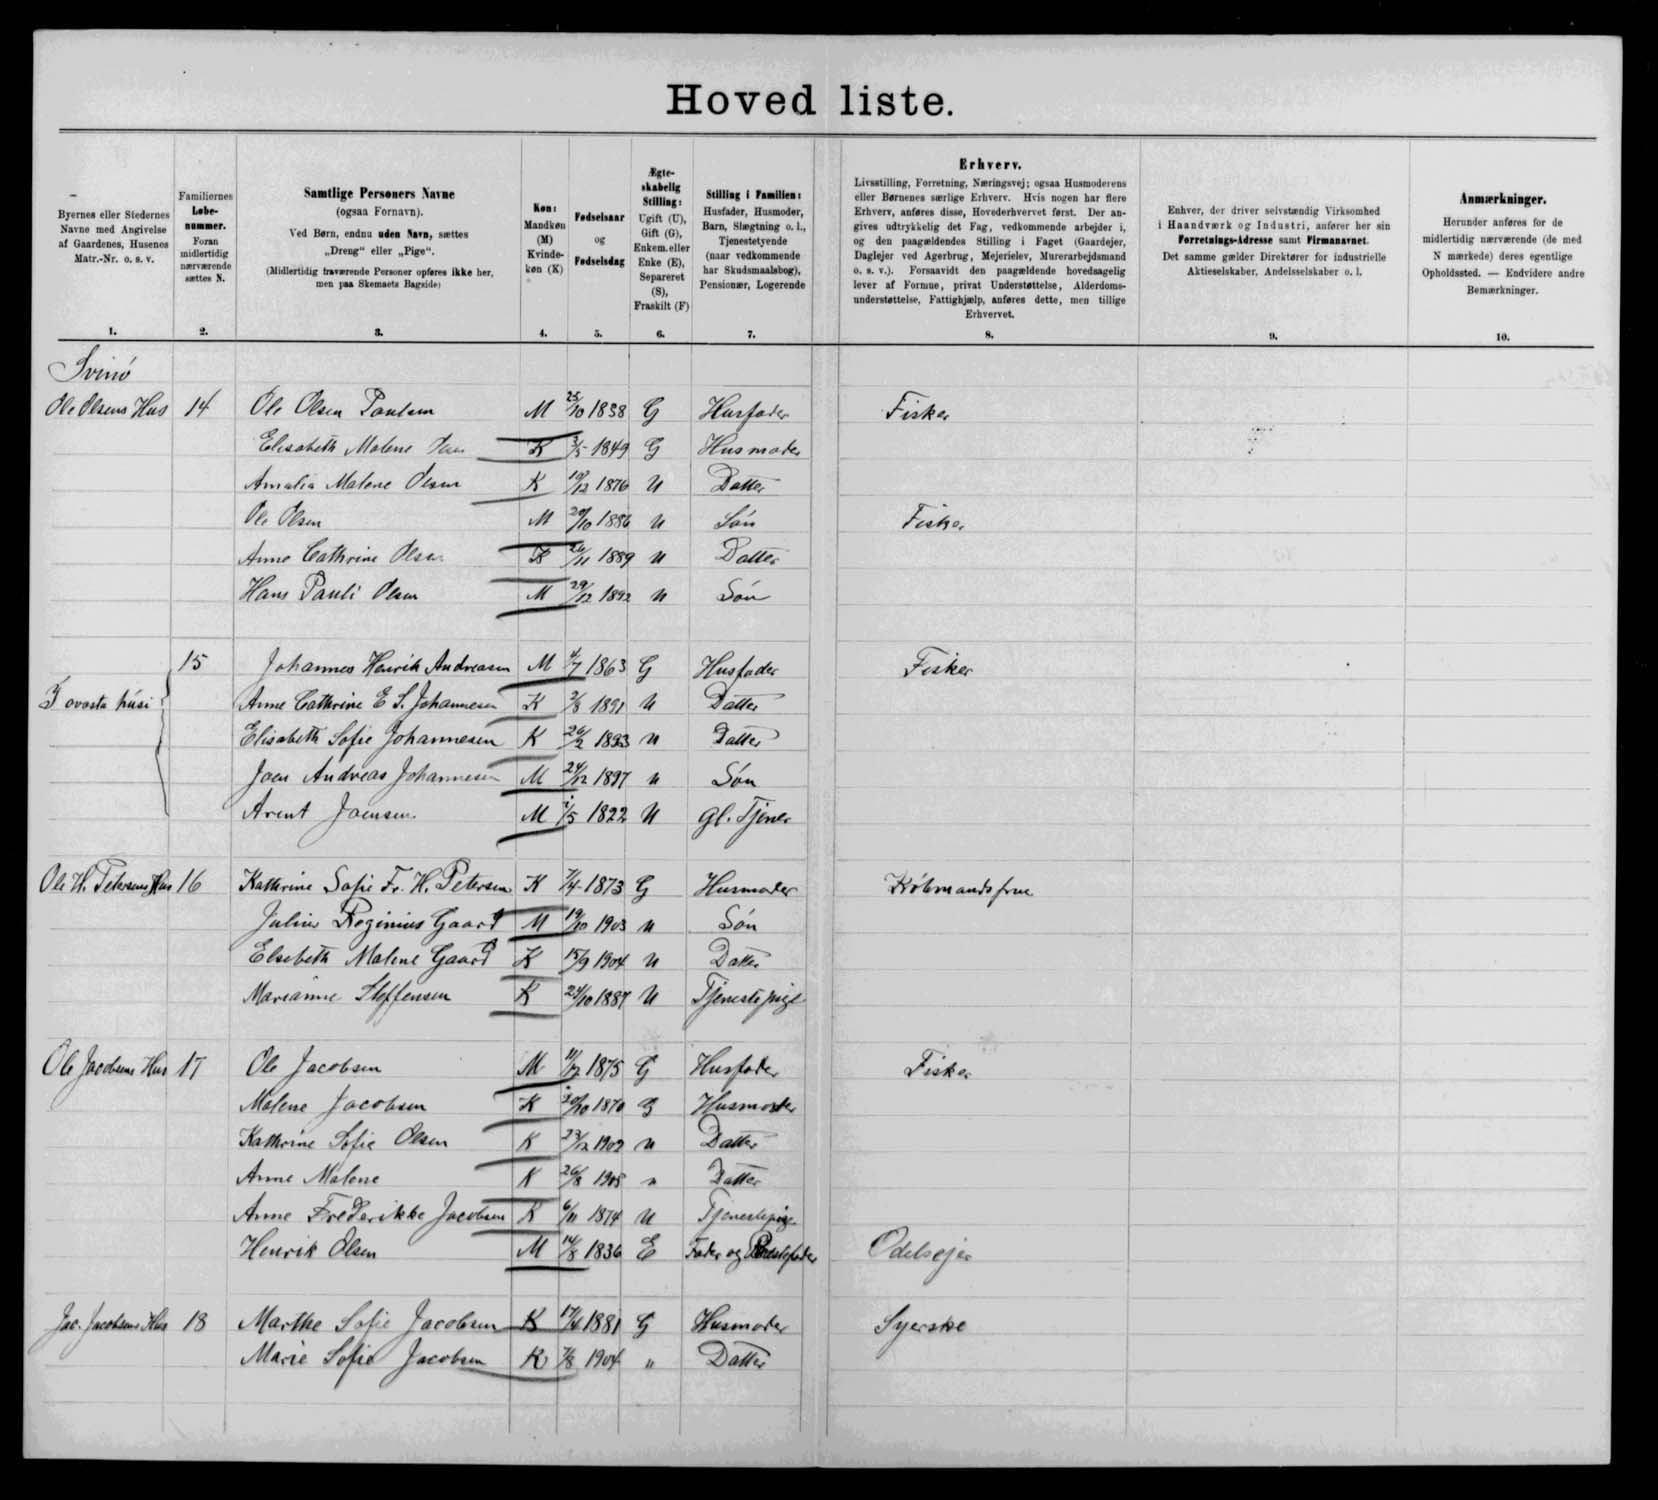 Hoved liste.
Byernes eller Stedernes
Navne med Angivelse
af Gaardenes, Husenes
Matr.-Nr. o. s. v.
1.
Familiernes
Løbe-
nummer.
Foran
midlertidig
nærværende
sættes N.
2.
Samtlige Personers Navne
(ogsaa Fornavn).
Ved Børn, endnu uden Navn, sættes
„Dreng“ eller „Pige“.
(Midlertidig fraværende Personer opføres ikke her,
men paa Skemaets Bagside)
3.
Køn:
Mandkøn
(M)
Kvinde-
køn (K)
4.
Fødselsaar
og
Fødselsdag
5.
Ægte-
skabelig
Stilling:
Ugift (U),
Gift (G),
Enkem. eller
Enke (E),
Separeret
(S),
Fraskilt (F)
6.
Stilling i Familien:
Husfader, Husmoder,
Barn, Slægtning o. l.,
Tjenestetyende
(naar vedkommende
har Skudsmaalsbog),
Pensionær, Logerende
7.
Erhverv.
Livsstilling, Forretning, Næringsvej; ogsaa Husmoderens
eller Børnenes særlige Erhverv. Hvis nogen har flere
Erhverv, anføres disse, Hovederhvervet først. Der an-
gives udtrykkelig det Fag, vedkommende arbejder i,
og den paagældendes Stilling i Faget (Gaardejer,
Daglejer ved Agerbrug, Mejerielev, Murerarbejdsmand
o. s. v.). Forsaavidt den paagældende hovedsagelig
lever af Formue, privat Understøttelse, Alderdoms-
understøttelse, Fattighjælp, anføres dette, men tillige
Erhvervet.
8.
Enhver, der driver selvstændig Virksomhed
i Haandværk og Industri, anfører her sin
Forretnings-Adresse samt Firmanavnet.
Det samme gælder Direktører for industrielle
Aktieselskaber, Andelsselskaber o. l.
9.
Anmærkninger.
Herunder anføres for de
midlertidig nærværende (de med
N mærkede) deres egentlige
Opholdssted. — Endvidere andre
Bemærkninger.
10.
Svinø
Ole Olsens Hus 14 Ole Olsen Poulsen M 25/10 1838 G Husfader Fisker
Elisabeth Malene K 3/5 1849 G Husmoder
Amalia Malene Olsen K 19/12 1876 U Datter
Ole Olsen M 20/10 1886 U Søn Fisker
Anne Cathrine Olsen K 26/11 1889 U Datter
Hans Pauli Olsen M 29/12 1892 U Søn
15 Johannes Henrik Andreasen M 4/7 1863 G Husfader Fisker
I ovasta húsi Anne Cathrine E S. Johannesen K 2/8 1891 U Datter
Elisabeth Sofie Johannesen K 26/2 1893 U Datter
Joen Andreas Johannesen M 24/12 1897 U Søn
Arent Joensen M 1/5 1822 U gl. Tjener
Ole H. Petersens Hus 16 Kathrine Sofie Fr. H. Petersen K 7/4 1873 G Husmoder Købmandsfrue
Julius Reginius Gaard M 19/10 1903 U Søn
Elsebeth Malene Gaard K 15/9 1904 U Datter
Marianne Steffensen K 24/10 1887 U Tjenestepige
Ole Jacobsens Hus 17 Ole Jacobsen M 11/2 1875 G Husfader Fisker
Malene Jacobsen K 30/10 1870 G Husmoder
Kathrine Sofie Olsen K 23/12 1902 U Datter
Anne Malene K 26/8 1905 " Datter
Anne Frederikke Jacobsen K 6/11 1874 U Tjenestepige
Henrik Olsen M 14/8 1836 E Fader og Plejefader Odelsejer
Jac. Jacobsens Hus 18 Marthe Sofie Jacobsen K 17/4 1881 G Husmoder Syerske
Marie Sofie Jacobsen K 7/8 1904 " Datter